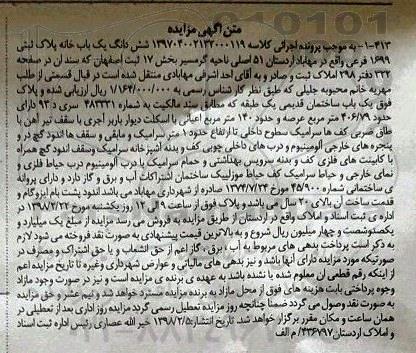 متن آگهی مزایده
۱-۴۱۳- به موجب پرونده اجرائی کلاسه ۱۳۹۷۰۴۰۰۲۱۳۲۰۰۰۱۱۹ شش دانگ یک باب خانه پلاک ثبتی
۱۶۹۹ فرعی واقع در مهاباد اردستان ۵۱ اصلی ناحیه گرمسیر بخش ۱۷ ثبت اصفهان که سند آن در صفحه
۳۳۲ دفتر ۲۹۸ املاک ثبت و صادر و به آقای احد اشرفی مهابادی منتقل شده است در قبال قسمتی از طلب
مهریه خانم محبوبه جلیلی که طبق نظر کارشناس رسمی به ۱/۱۶۴/۰۰۰/۰۰۰ ریال ارزیابی شده و پلاک
فوق یک باب ساختمان قدیمی یک طبقه که مطابق سند مالکیت به شماره ۴۸۳۳۳۱ سری د ۹۳ دارای
۴۰۶/۷۹ متر مربع عرصه و حدود ۱۴۰ متر مربع اعیانی با اسکلت دیوار باربر آجری با سقف تیر آهن با
طاق ضربی کف ها سرامیک سطوح داخلی تا ارتفاع حدود ۱ متر سرامیک و مابقی و سقف ها اندود گچ در و
پنجره های خارجی آلومینیوم و درب های داخلی چوبی کف و بدنه آشپزخانه سرامیک وسقف اندود گچ همراه
با کابینت های فلزی کف و بدنه سرویس بهداشتی و حمام سرامیک با درب آلومینیوم درب حیاط فلزی و
نمای خارجی و حیاط سرامیک کف حیاط موزاییک ساختمان اشتراکات آب و برق و گاز دارد و دارای پروانه
ی ساختمانی شماره ۴۵/۹۰۰ مورخ ۱۳۷۴/۷/۲۴ صادره از شهرداری مهاباد می باشد اندود پشت بام ایزوگام و
قدمت ساخت آن بالای ۲۰ سال می باشد و پلاک فوق از ساعت ۹ الی ۱۲ روز یکشنبه مورخ ۱۳۹۸/۲/۲۲ در
اداره ی ثبت اسناد و املاک واقع در اردستان از طریق مزایده به فروش می رسد مزایده از مبلغ یک میلیارد و
یکصدوشصت و چهار میلیون ریال شروع و به بالاترین قیمت پیشنهادی به صورت نقد فروخته می شود لازم
به ذکر است پرداخت بدهی های مربوط به آب ، برق ، گاز اعم از حق انشعاب و یا حق اشتراک و مصرف در
صورتیکه مورد مزایده دارای آنها باشد و نیز بدهی های مالیاتی و عوارض شهرداری وغیره تا تاریخ مزایده اعم
از اینکه رقم قطعی آن معلوم شده یا نشده باشد به عهده ی برنده ی مزایده است و نیز در صورت وجود مازاد
وجوه پرداختی بابت هزینه های فوق از محل مازاد به برنده مزایده مسترد خواهد شد و نیم عشر و حق مزایده
به صورت نقد وصول می گردد ضمنا چنانچه روز مزایده تعطیل رسمی گردد مزایده روز اداری بعد از تعطیلی در
همان ساعت و مکان مقرر برگزار خواهد شد. تاریخ انتشار: ۱۳۹۸/۲/۵ خیر الله عصاری رئیس اداره ثبت اسناد
و املاک اردستان۴۳۶۷۹۷/ م الف